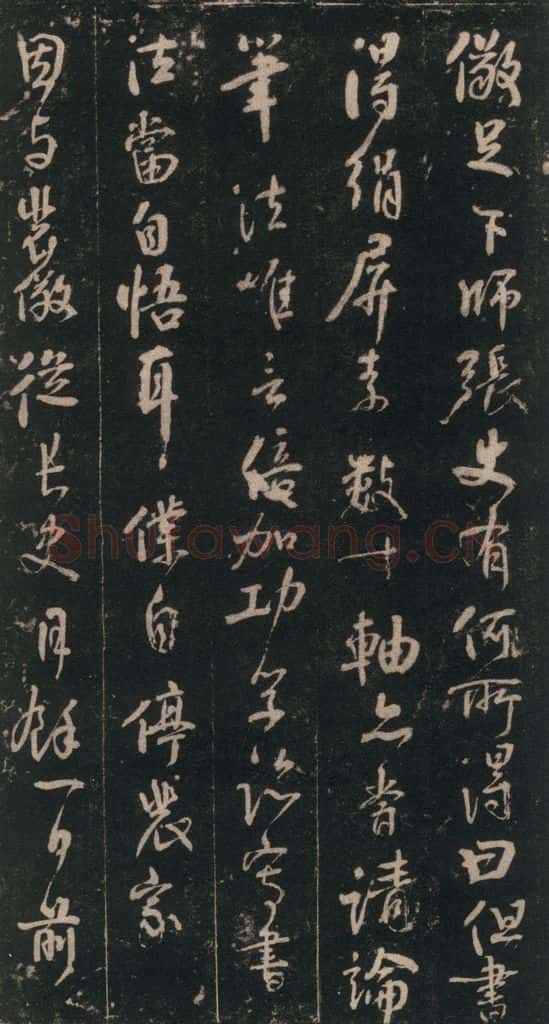 儆足下師張史有何所得曰但書
得絹屏素數十軸亦嘗請論
筆法唯言倍加功學臨寫書
法當自悟耳僕自停裴家
因与裴儆從長史月餘一日前
Shufawang.cn